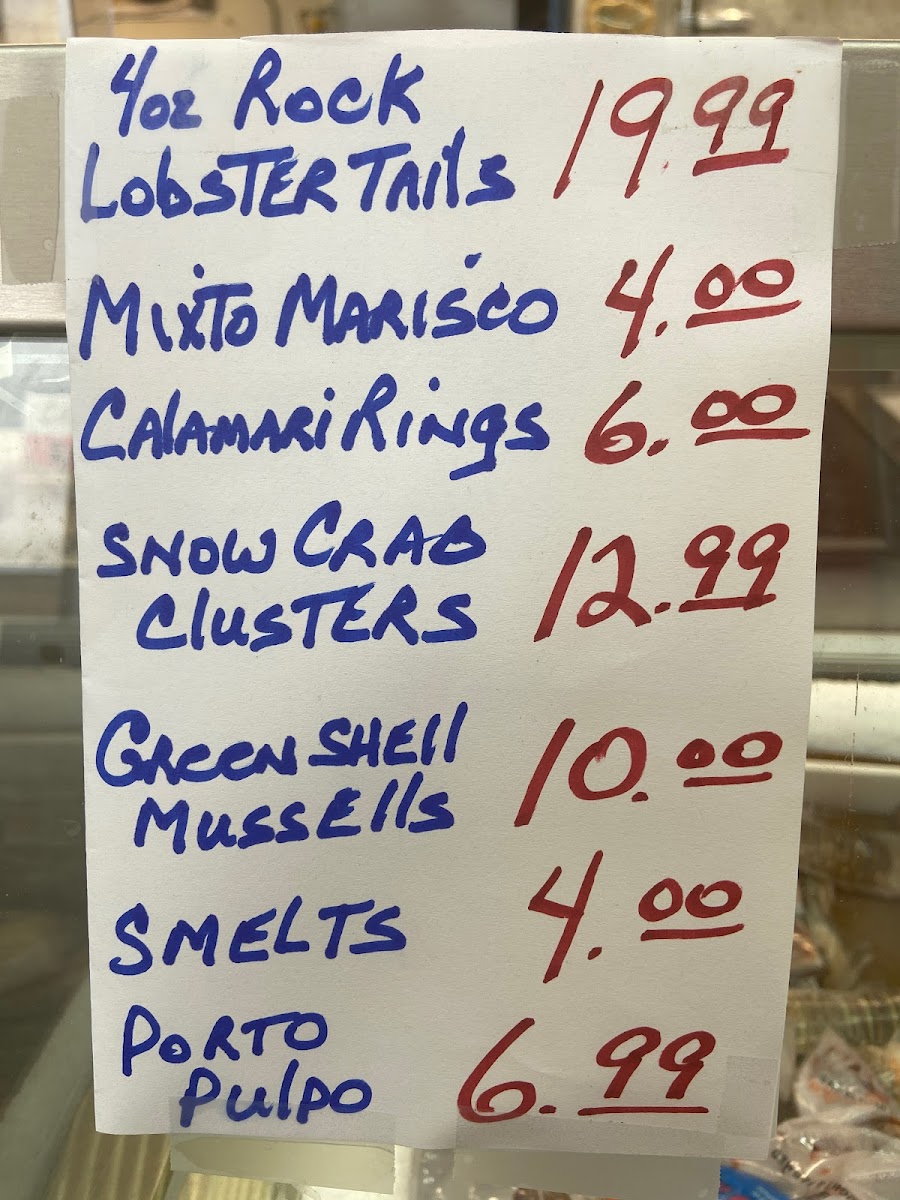 4oz Rock
Lobster Tails 19.99
Mixto Marisco 4.00
Calamari Rings 6.00
Snow Crab
Clusters 12.99
Green Shell
Mussells 10.00
Smelts 4.00
Porto
Pulpo 6.99